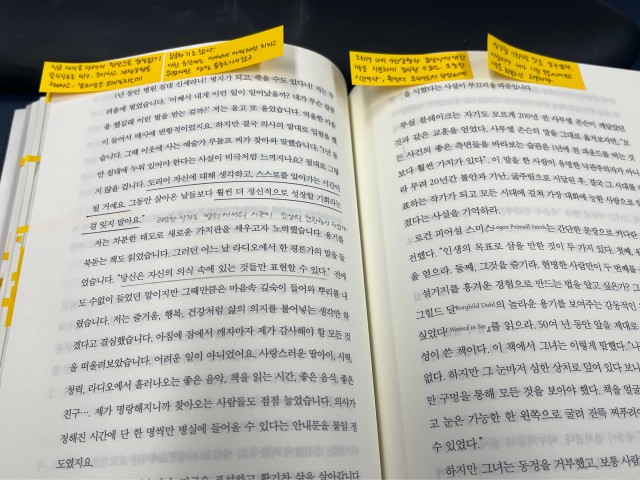 1년 동안 병원 침대 신세라니! 병자가 되고, 죽을 수도 있다니! 저는 두
려움에 떨었습니다. '어째서 내게 이런 일이 일어났을까? 내가 무슨 잘못
을 했길래 이런 벌을 받는 걸까?' 저는 울고 또 울었습니다. 억울한 마음
이 들어서 매사에 반항적이었지요. 하지만 결국 의사의 말대로 입원을 했
습니다. 그때 이웃에 사는 예술가 루돌프 씨가 찾아와 말했습니다. "1년 동
안 침대에 누워 있어야 한다는 사실이 비극처럼 느껴지나요? 절대로 그렇
지 않을 겁니다. 도리어 자신에 대해 생각하고, 스스로를 알아가는 시간이
될 거예요. 그동안 살아온 날들보다 훨씬 더 정신적으로 성장할 기회라는
걸 잊지 말아요."
저는 차분한 태도로 새로운 가치관을 세우고자 노력했습니다. 용기를
북돋는 책도 읽었습니다. 그러던 어느 날 라디오에서 한 평론가의 말을 들
었습니다. "당신은 자신의 의식 속에 있는 것들만 표현할 수 있다." 전에
도 수없이 들었던 말이지만 그때만큼은 마음속 깊숙이 들어와 뿌리를 내
렸습니다. 저는 즐거움, 행복, 건강처럼 삶의 의지를 불어넣는 생각만 하
겠다고 결심했습니다. 아침에 잠에서 깨자마자 제가 감사해야 할 모든 것
을 떠올려보았습니다. 어려운 일이 아니었어요. 사랑스러운 딸아이, 시력,
청력, 라디오에서 흘러나오는 좋은 음악, 책을 읽는 시간, 좋은 음식, 좋은
친구…. 제가 명랑해지니까 찾아오는 사람들도 점점 늘었습니다. 의사가
정해진 시간에 단 한 명씩만 병실에 들어올 수 있다는 안내문을 붙일 정
도였지요.
을 익혔다는 사실이 부끄러울 따름입니다."
루실 블레이크는 자기도 모르게 200년 전 사무엘 존슨이 깨달았던
것과 같은 교훈을 얻었다. 사무엘 존슨의 말을 그대로 옮겨보자면, "모
든 사건의 좋은 측면들을 바라보는 습관은 1년에 천 파운드를 버는 것
보다 훨씬 가치가 있다." 이 말을 한 사람이 유명한 낙관주의자가 아니
라 무려 20여년간 불안과 가난, 굶주림으로 시달린 후, 결국 그 시대
표하는 작가가 되고 모든 시대에 걸쳐 가장 대화에 능한 사람으로
졌다는 사실을 기억하라.
로건 피어설 스미스Logan Pearsall Smith는 간단한 문장으로 커다란
전했다. "인생의 목표로 삼을 만한 것이 두 가지 있다. 첫째, 원
을 얻으라. 둘째, 그것을 즐기라. 현명한 사람만이 두 번째를
설거지를 흥겨운 경험으로 만드는 법을 알고 싶은가? 그
그힐드 달Borghild Dahl의 놀라운 용기를 보여주는 감동적인
싶었다I Wanted to See』를 읽으라. 50여 년 동안 앞을 제대로
성이 쓴 책이다. 이 책에서 그녀는 이렇게 말했다. "나
없다. 하지만 그 눈마저 심한 상처로 덮여 있다 보니
만 구멍을 통해 모든 것을 보아야 했다. 책을 얼굴
고 눈은 가능한 한 왼쪽으로 굴려 잔뜩 찌푸려야
수 있었다."
하지만 그녀는 동정을 거부했고, 보통 사람